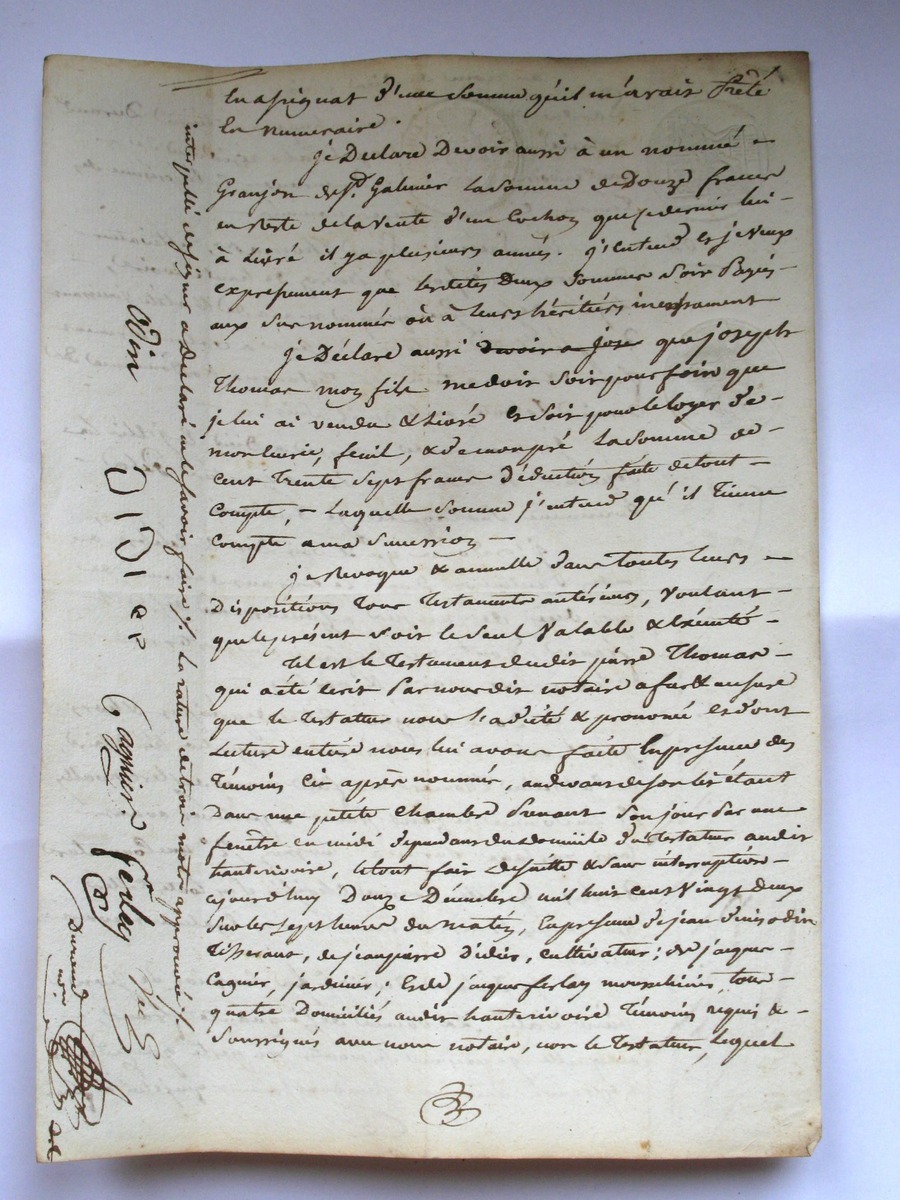 En assignat d'une somme qu'il m'avait Prêté
En numeraire.
je Déclare Devoir aussi à un nommé
Granjon de St. Galmier la somme de Douze francs
en reste de la vente d'un Cochon que ce dernier lui
à Livré il ya plusieurs annés. j'Entend Et je veux
expressement que lesdites Deux sommes soit Payés
aux sus nommés où à leurs héritiers incessament
je Déclare aussi devoir a jose que joseph
Thomas mon fils me doit soit pour foin que
je lui ai vendu & Livré et soit pour le loyer de
mon Ecurie, fenil, & de mon pré La somme de
cent Trente Sept francs déduction faite de tout
compte, Laquelle somme j'entend qu'il Tienne
compte a ma succession
je Revoque & annulle dans toutes leurs
Dispositions Tous Testaments antérieurs, voulant
que le présent soit le seul valable & Exécuté
Tel est le Testament dudit pierre Thomas
qui a été écrit Par nous dit notaire a fur & mesure
que le Testateur nous l'a dicté & prononcé et dont
Lecture entière nous lui avons faite En presence des
Témoins Ci après nommés, au devant de son lit étant
Dans une petite chambre Prenant son jour Par une
fenêtre en midi dependant du domicile du Testateur audit
hauterivoire, le tout fait de suitte & sans interruption
ajourd'huy Douze Décembre mil huit cent Vingt deux
Sur les sept heures du matin, En presence de jean denis odin
Tisserant, de jean pierre Didier, cultivateur; de jacques
Cagnier, jardinier; Et de jacques ferlay mouschinier, tous
quatre Domiciliés audit hauterivoire Témoins requis &
Soussignés avec nous notaire, non le Testateur, Lequel
interpellé de signer a Declaré ne le savoir faire ./. La rature de trois mots approuvée ./.
Odin
DiDier
Cagnier
ferlay
Durand